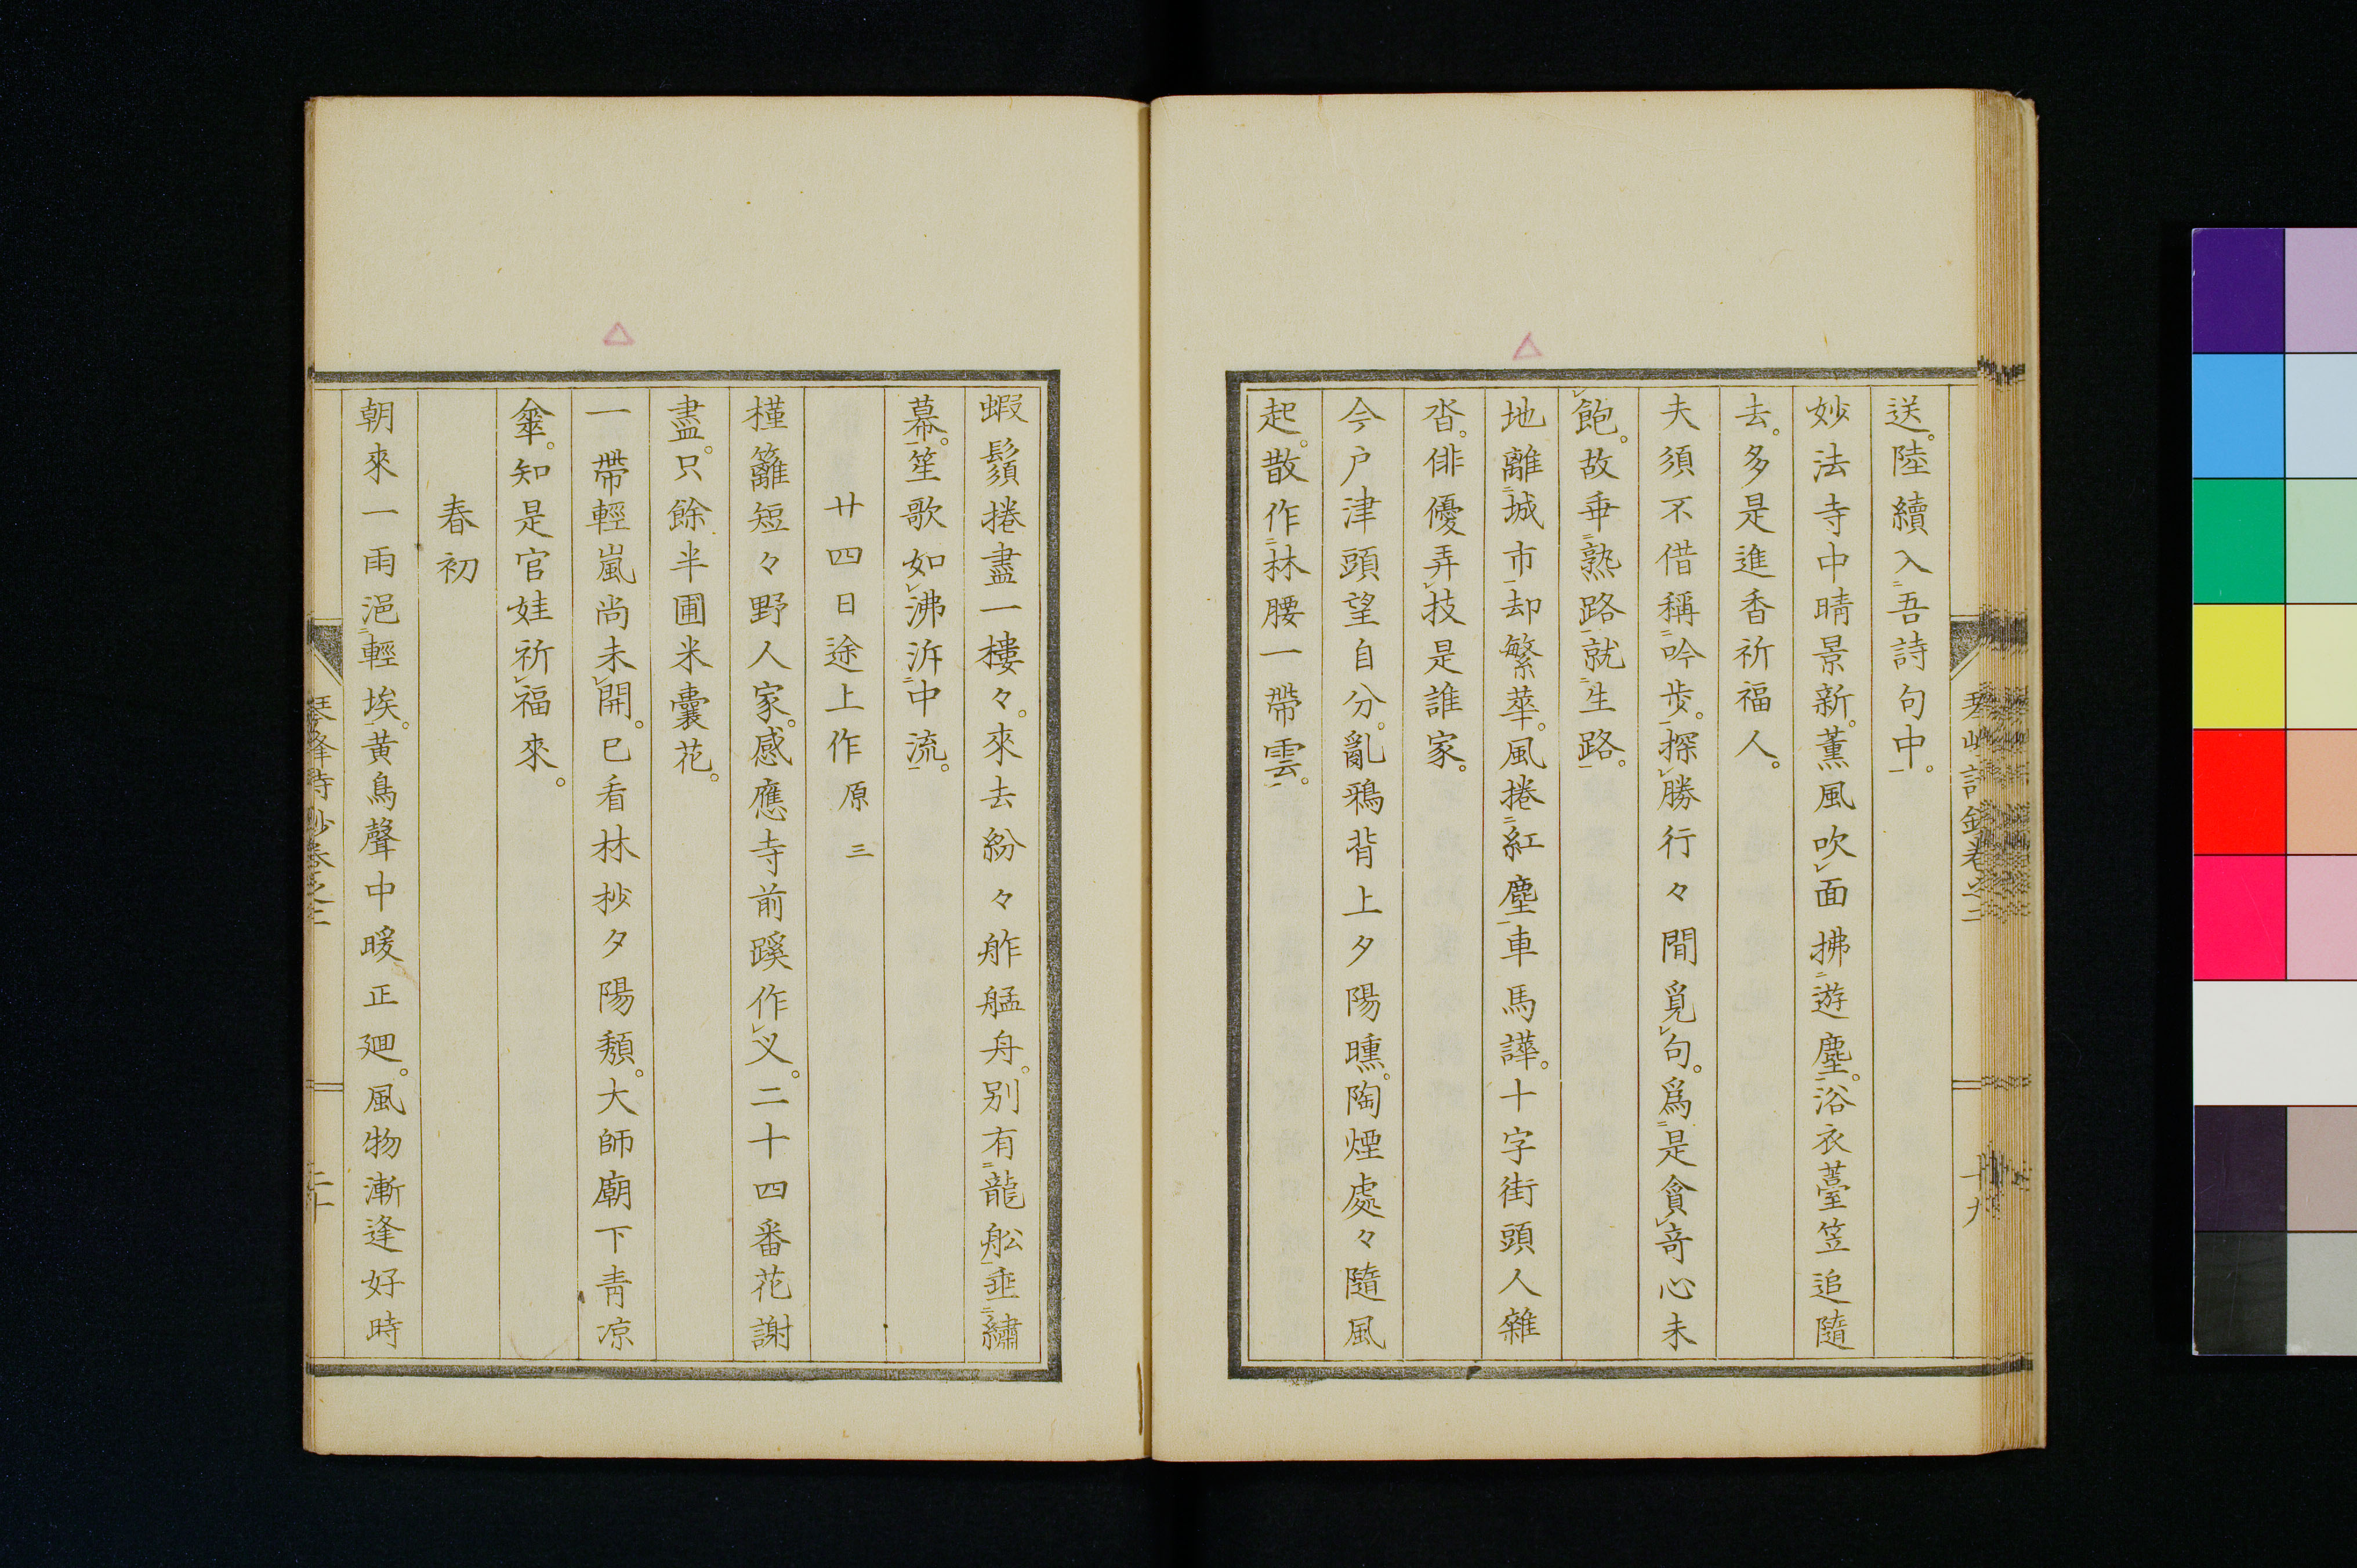 送。陸續入二吾詩句中一。
妙法寺中晴景新。薰風吹レ面拂二遊塵一。浴衣薹笠追隨
去。多是進香祈福人。
夫須不借稱二吟步一。探レ勝行々閒覓レ句。爲二是貪レ奇心未
レ飽。故乖二熟路一就二生路一。
地離二城市一却繁華。風捲二紅塵一車馬譁。十字街頭人雜
沓。俳優弄レ技是誰家。
今戶津頭望自分。亂鴉背上夕陽曛。陶煙處々隨風
起。散作二林腰一帶雲一。
蝦鬚捲盡一樓々。來去紛々舴艋舟。別有二龍舩一垂二繡
幕一。笙歌如レ沸泝二中流一。
廿四日途上作 原三
槿籬短々野人家。感應寺前蹊作レ义。二十四番花謝
盡。只餘半圃米囊花。
一帶輕嵐尚未レ開。已看林抄夕陽頹。大師廟下靑凉
傘。知是官娃祈レ福來。
春初
朝來一雨浥二輕埃一。黃鳥聲中暖正廻。風物漸逢好時
琴峰詩鈔卷之二
二十